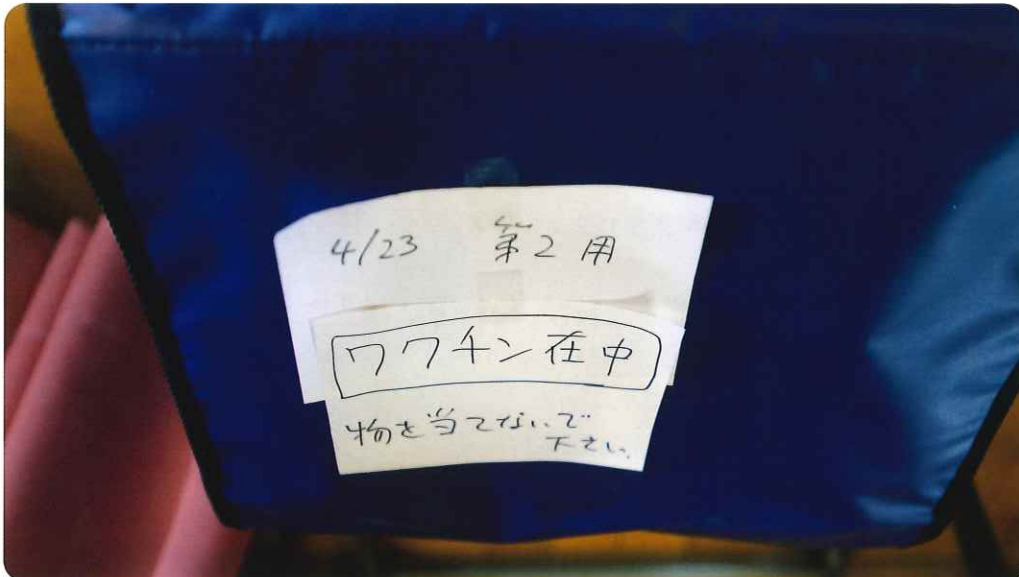 4/23 第2用
ワクチン在中
物を当てないで
下さい。